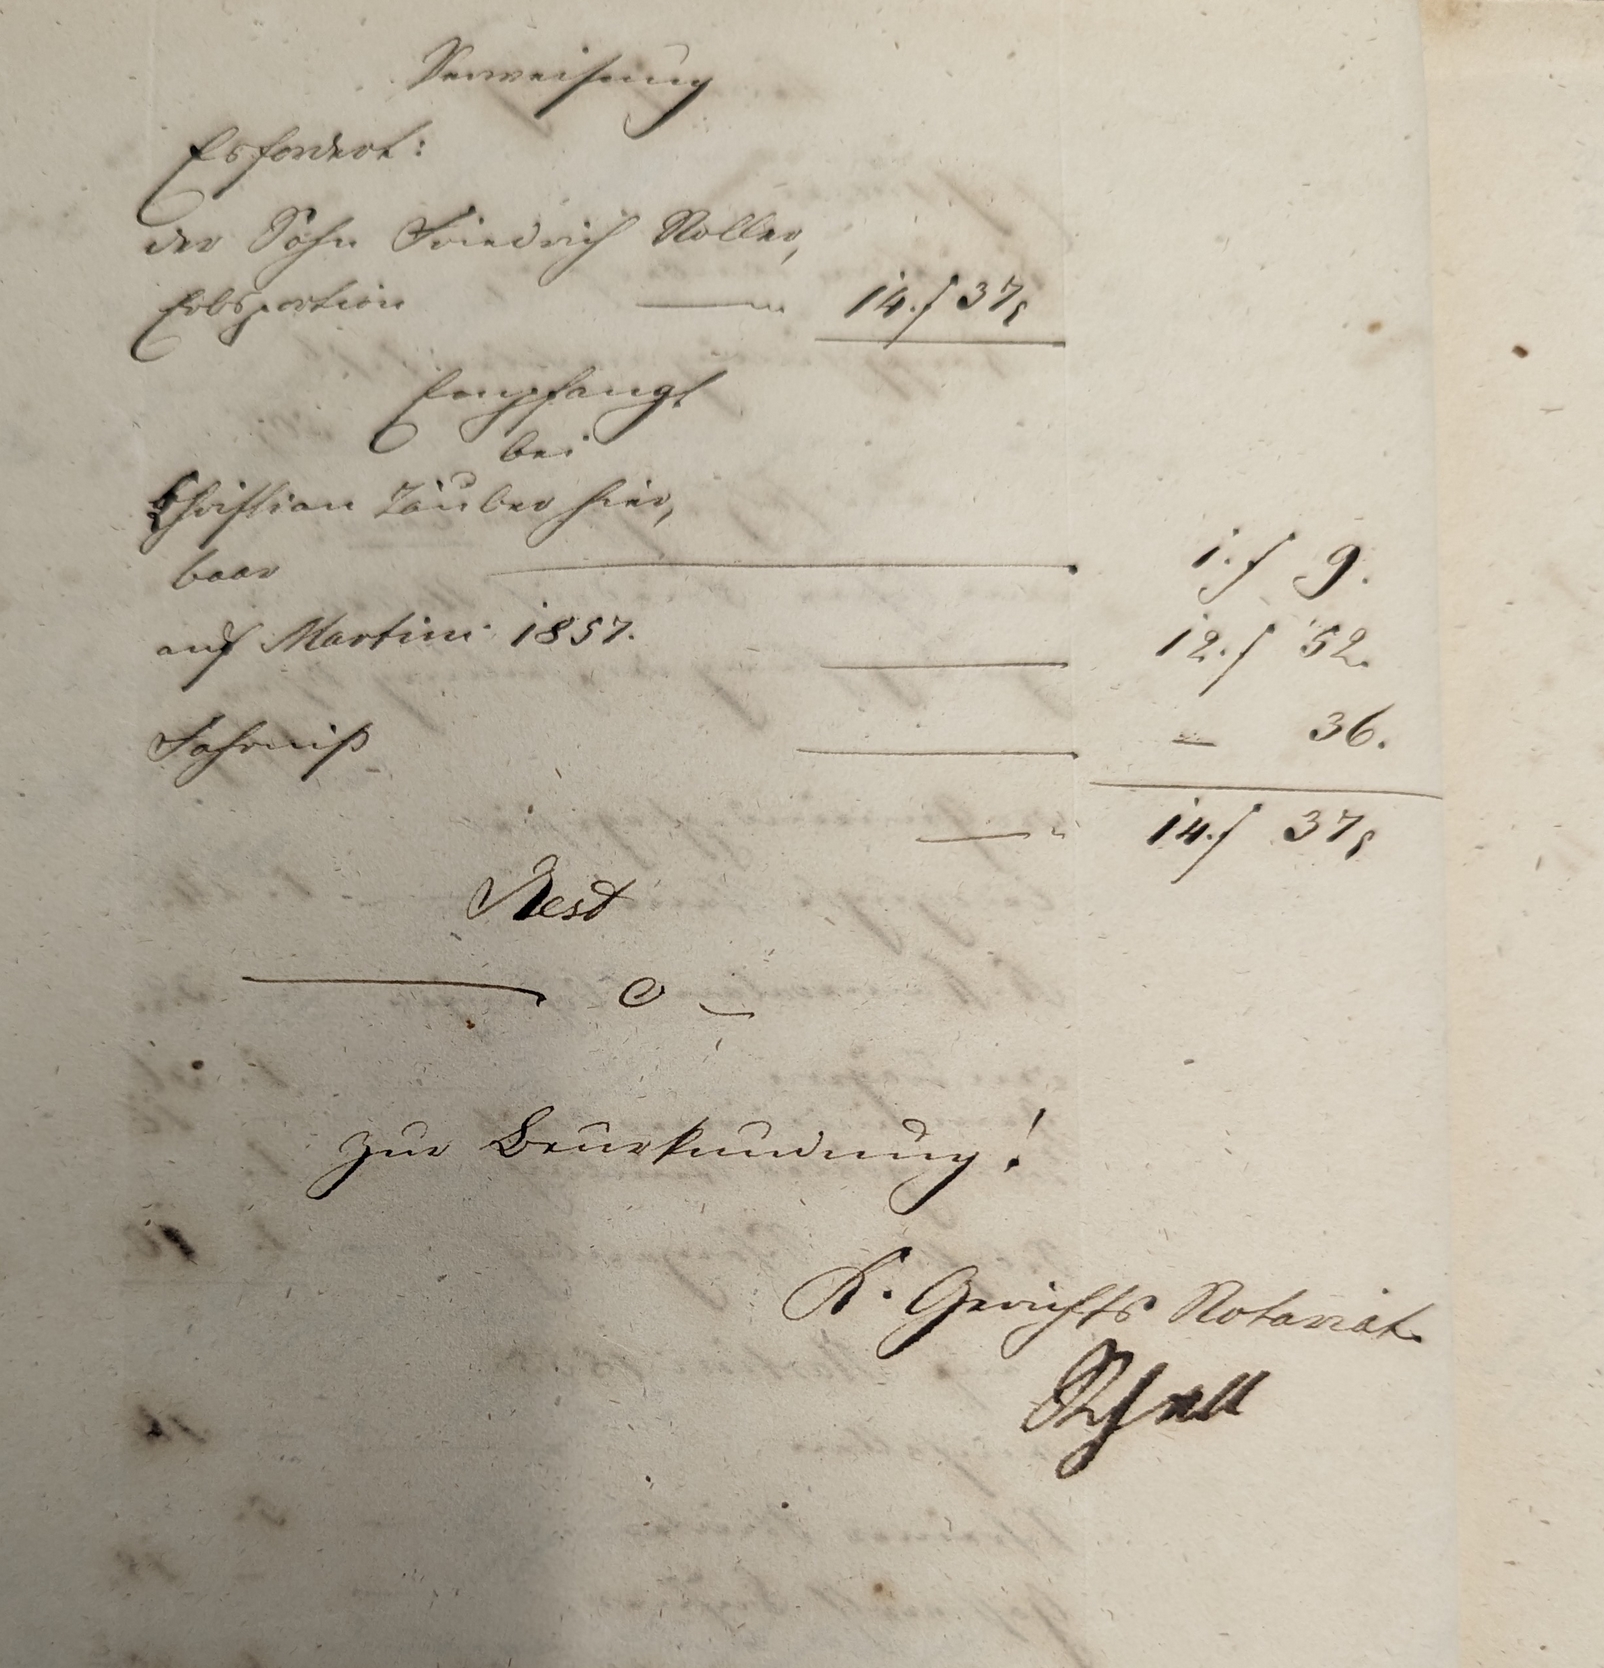 Verweisung
Es fordert:
der Sohn Friedrich Roller,
Erbsportion 14. f 37,
Empfangt
bei
Christian Täuber hier,
baar 1. f 9.
auf Martini 1857. 12. f 52.
Fahrniß — 36.
14. f 37,
Rest
0
Zur Beurkundung!
K. Gerichts Notariat